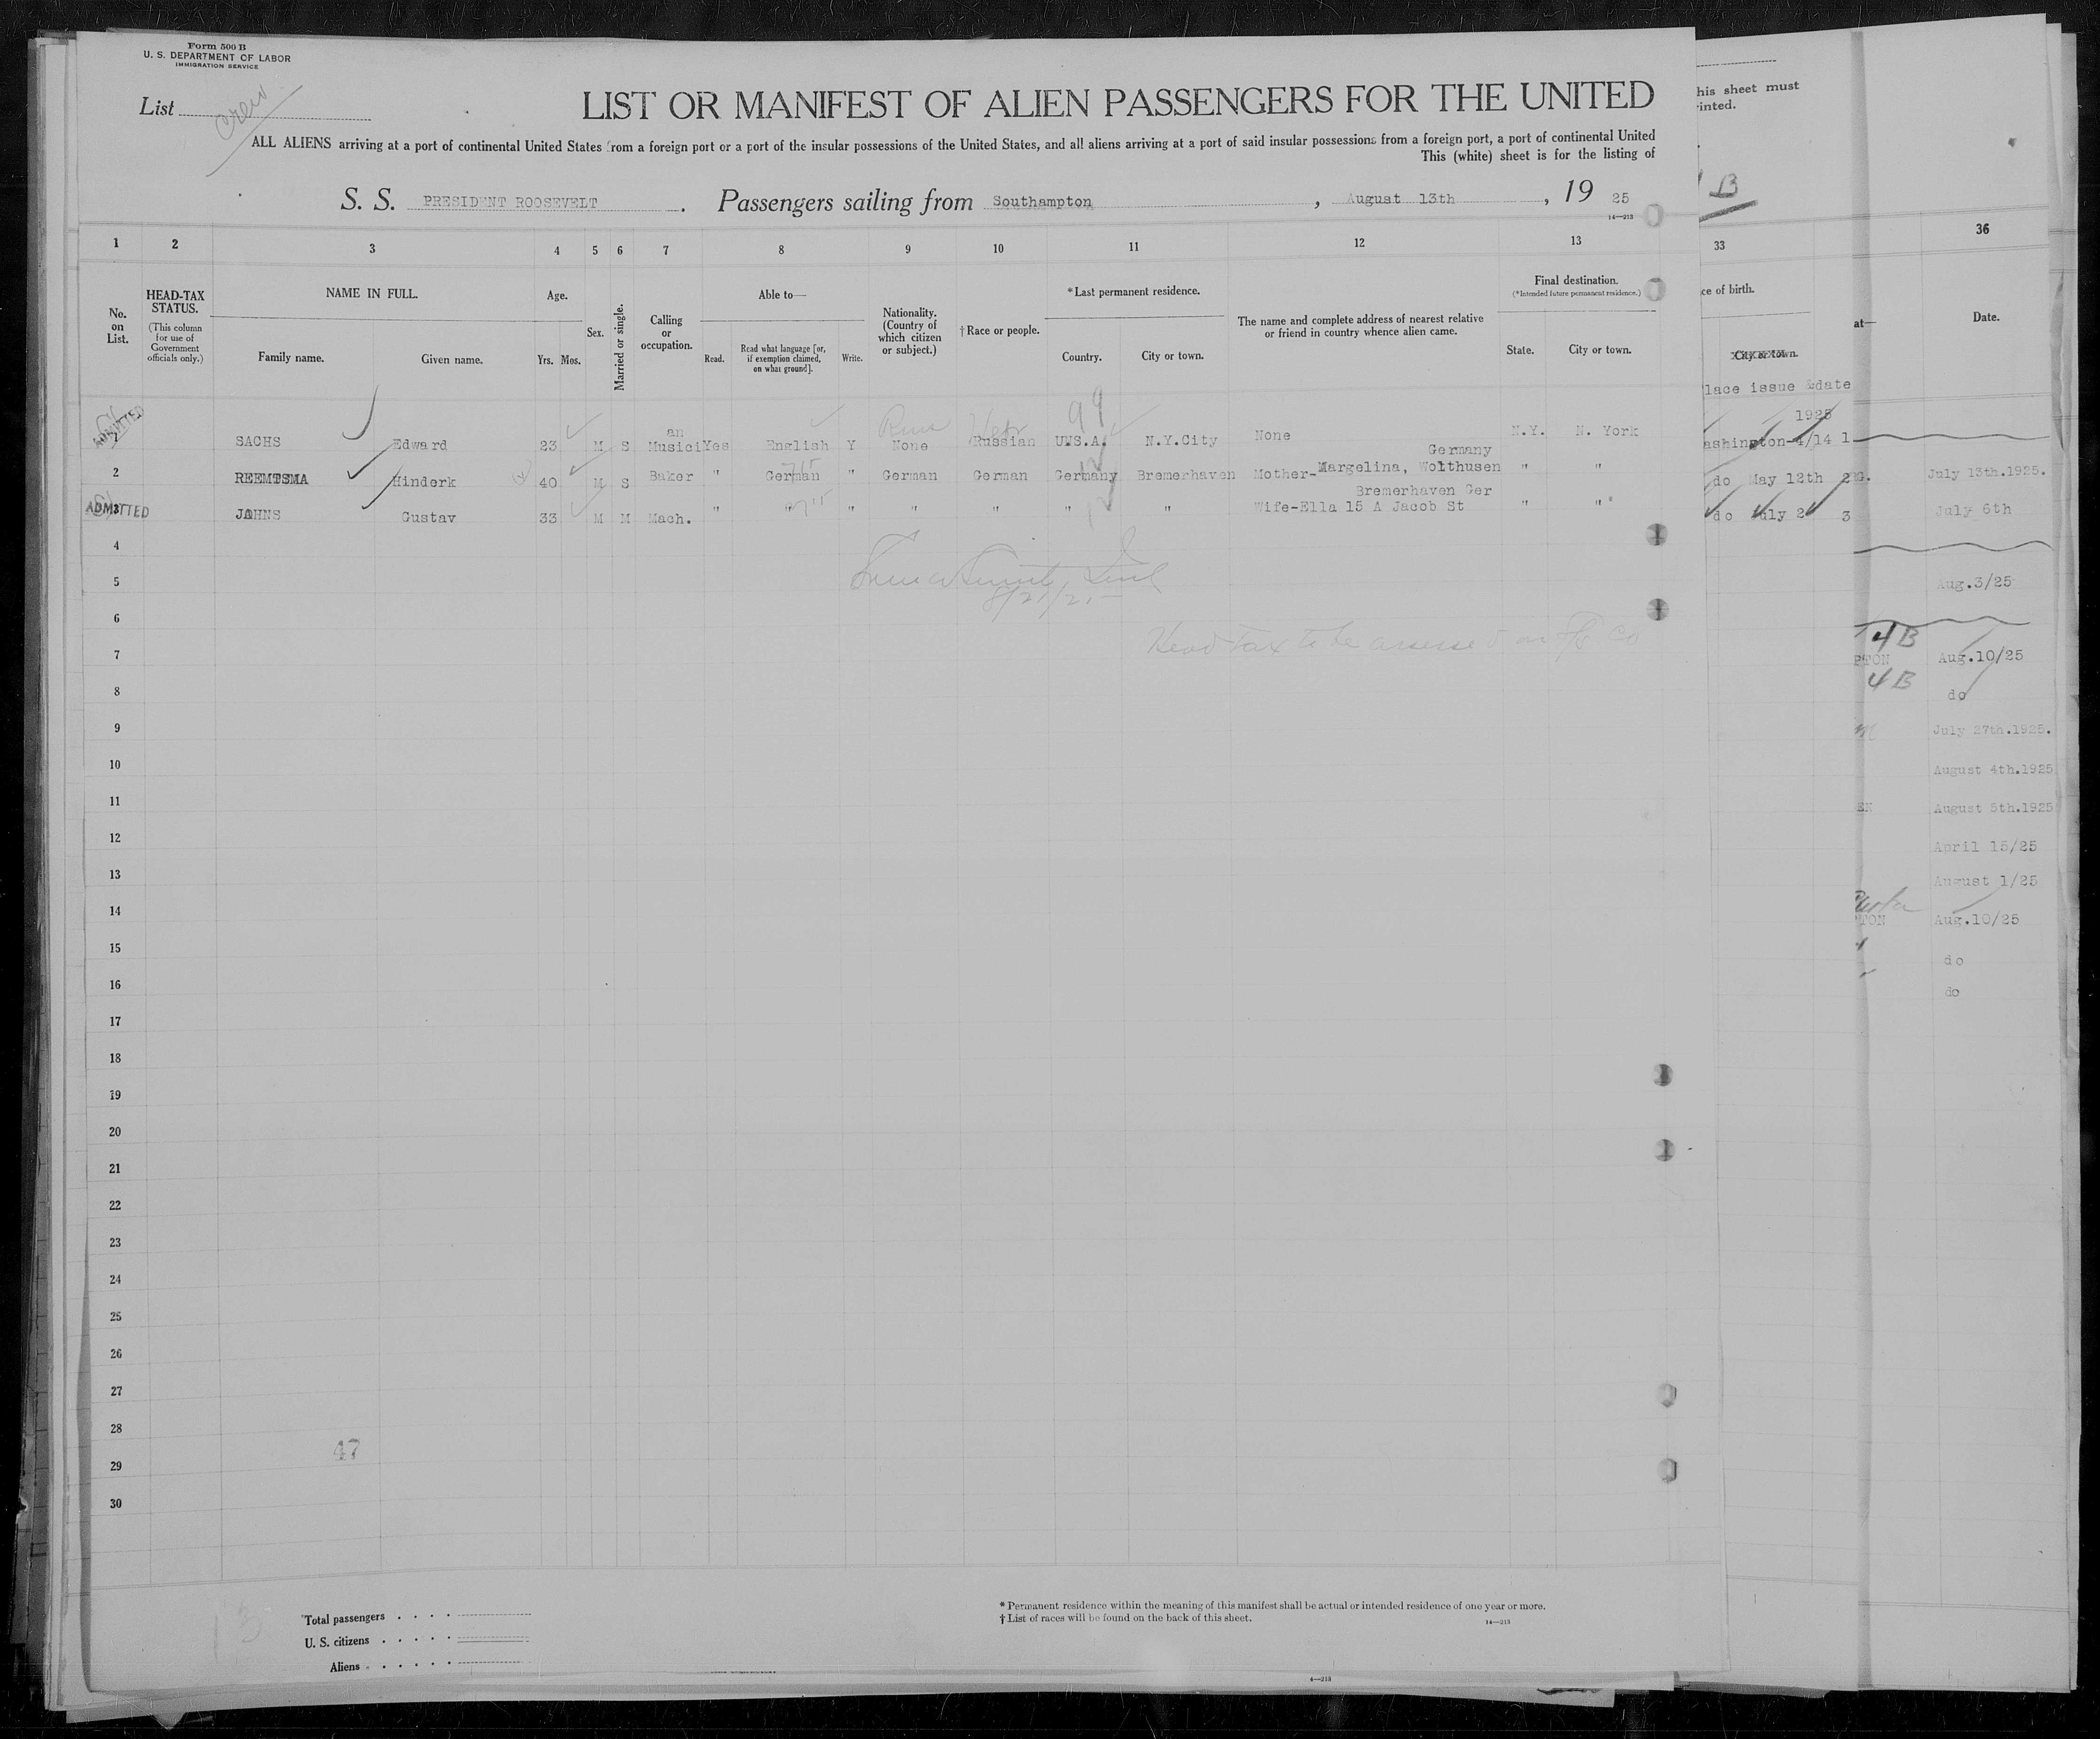 Form 500 B
U. S. DEPARTMENT OF LABOR
IMMIGRATION SERVICE
List
crew
LIST OR MANIFEST OF ALIEN PASSENGERS FOR THE UNITED
ALL ALIENS arriving at a port of continental United States from a foreign port or a port of the insular possessions of the United States, and all aliens arriving at a port of said insular possessions from a foreign port, a port of continental United
This (white) sheet is for the listing of
S. S. PRESIDENT ROOSEVELT. Passengers sailing from Southampton, August 13th, 19 25
14—213
1 2 3 4 5 6 7 8 9 10 11 12 13
No. on List.
HEAD-TAX STATUS.
(This column for use of Government officials only.)
NAME IN FULL.
Family name. Given name.
Age.
Yrs. Mos.
Sex.
Married or single.
Calling or occupation.
Able to—
Read. Read what language [or, if exemption claimed, on what ground]. Write.
Nationality. (Country of which citizen or subject.)
†Race or people.
*Last permanent residence.
Country. City or town.
The name and complete address of nearest relative or friend in country whence alien came.
Final destination.
(*Intended future permanent residence.)
State. City or town.
99
ADMITTED
an
1 SACHS Edward 23 M S Musici Yes English Y None Russian U.S.A. N.Y.City None N.Y. N. York
Germany
2 REEMTSMA Hinderk 40 M S Baker " German " German German Germany Bremerhaven Mother-Margelina, Wolthusen " "
Bremerhaven Ger
ADMITTED
3 JAHNS Gustav 33 M M Mach. " " " " " " " Wife-Ella 15 A Jacob St " "
4
5
8/21/25
6
Head Tax to be assessed on
7
8
9
10
11
12
13
14
15
16
17
18
19
20
21
22
23
24
25
26
27
28
47
29
30
Total passengers
U. S. citizens
Aliens
* Permanent residence within the meaning of this manifest shall be actual or intended residence of one year or more.
† List of races will be found on the back of this sheet.
14—213
4—213
his sheet must
inted.
B
33
ce of birth.
City or town.
lace issue &date
1925
ashington-4/14 1
do May 12th 2
do July 2 3
36
at—
Date.
RG. July 13th.1925.
July 6th
Aug.3/25
4 B
PTON Aug.10/25
4 B
do
July 27th.1925.
August 4th.1925
EN August 5th.1925
April 15/25
August 1/25
TON Aug.10/25
do
do